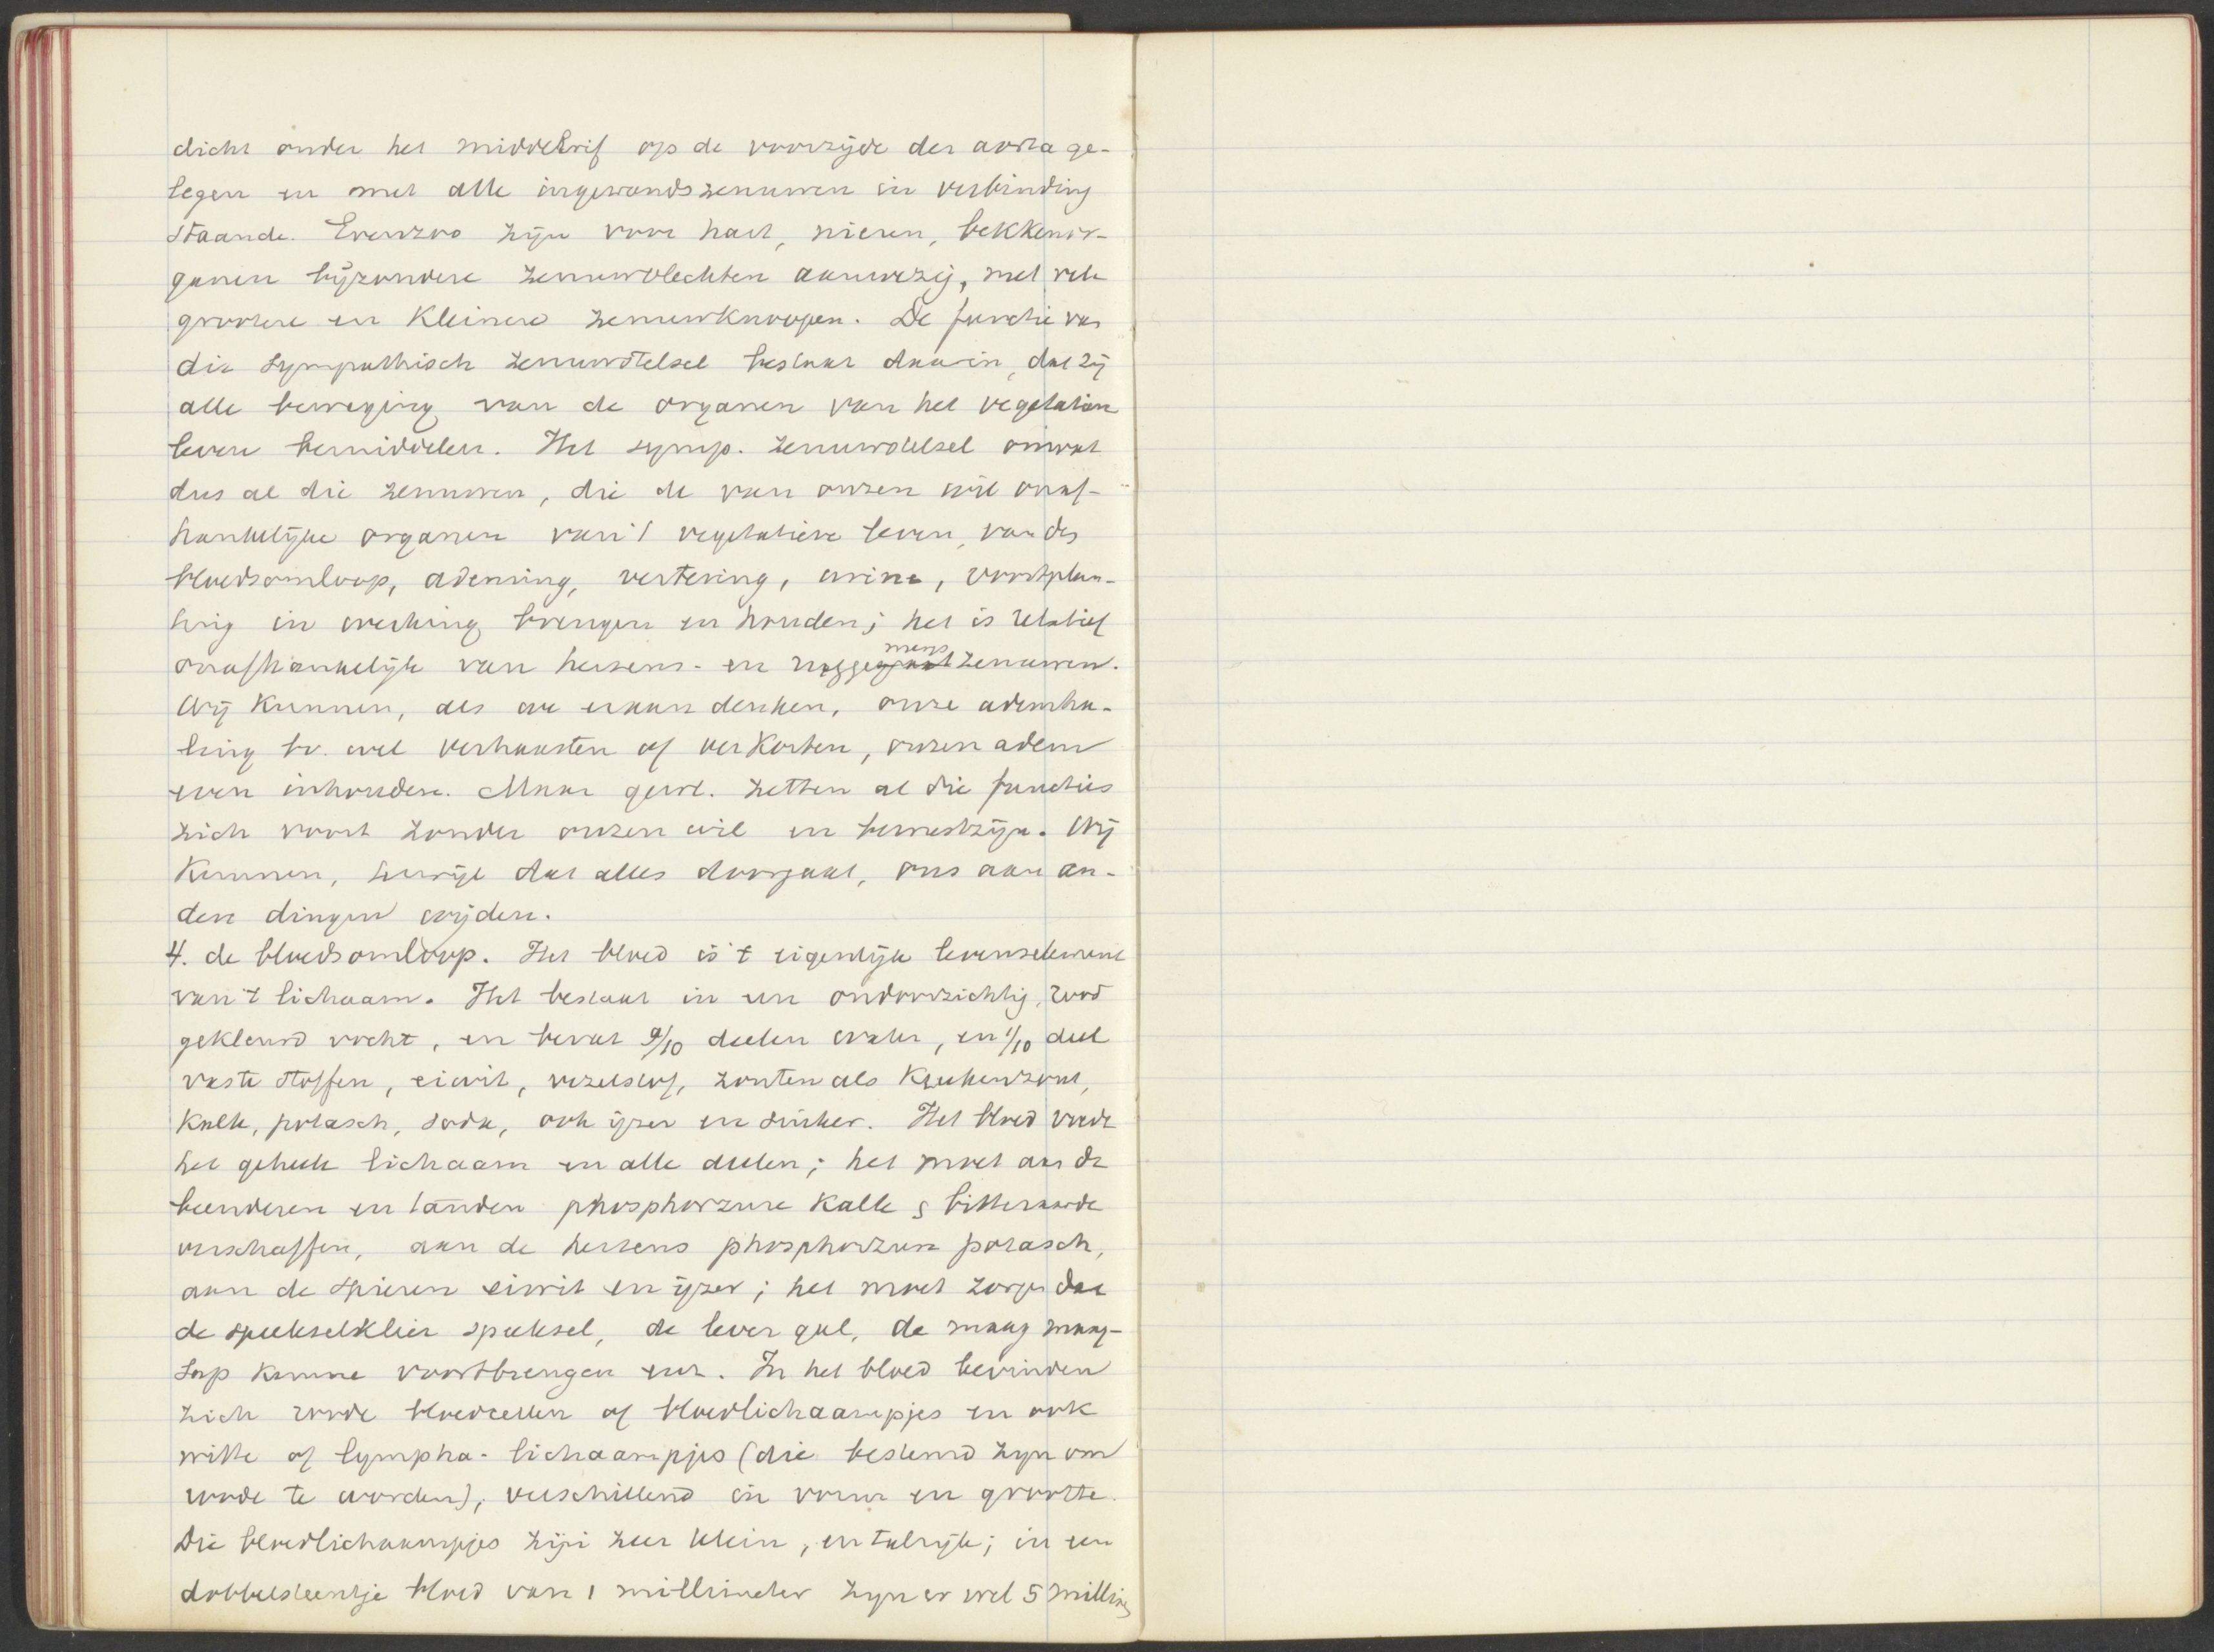 dicht onder het middelrif op de voorzijde der aorta ge-
legen en met alle ingewandszenuwen in verbinding
staande. Evenzoo zijn voor hart, nieren, bekkenor-
ganen bijzondere zenuwvlechten aanwezig, met vele
grootere en kleinere zenuwknoopen. De functie van
die sympathisch zenuwstelsel bestaat daarin, dat zij
alle beweging van de organen van het vegetatieve
leven bemiddelen. Het symp. zenuwstelsel omvat
dus al die zenuwen, die de van onzen wil onaf-
hankelijke organen van 't vegetatieve leven, van den
bloedsomloop, ademing, vertering, urine, voortplan-
ting in werking brengen en houden; het is relatief
onafhankelijk van hersens- en ruggemergzenuwen.
Wij kunnen, als we eraan denken, onze ademha-
ling bv. wel verhaasten of verkorten, onzen adem
even inhouden. Maar gew. zetten al die functies
zich voort zonder onzen wil en bewustzijn. Wij
kunnen, terwijl dat alles doorgaat, ons aan an-
dere dingen wijden.
4. de bloedsomloop. Het bloed is 't eigenlijke levenselement
van 't lichaam. Het bestaat in een ondoorzichtig, rood
gekleurd vocht, en bevat 9/10 deelen water, en 1/10 deel
vaste stoffen, eiwit, vezelstof, zouten als keukenzout,
kalk, potasch, soda, ook ijzer en suiker. Het bloed voedt
het geheele lichaam en alle deelen; het moet aan de
beenderen en tanden phosphorzure kalk & bitteraarde
verschaffen, aan de hersens phosphorzure potasch,
aan de spieren eiwit en ijzer; het moet zorgen dat
de speekselklier speeksel, de lever gal, de maag maag-
sap kunne voortbrengen enz. In het bloed bevinden
zich roode bloedcellen of bloedlichaampjes en ook
witte of lympha-lichaampjes (die bestemd zijn om
roode te worden), verschillend in vorm en grootte.
Die bloedlichaampjes zijn zeer klein, en talrijk; in een
dobbelsteentje bloed van 1 millimeter zijn er wel 5 millioen